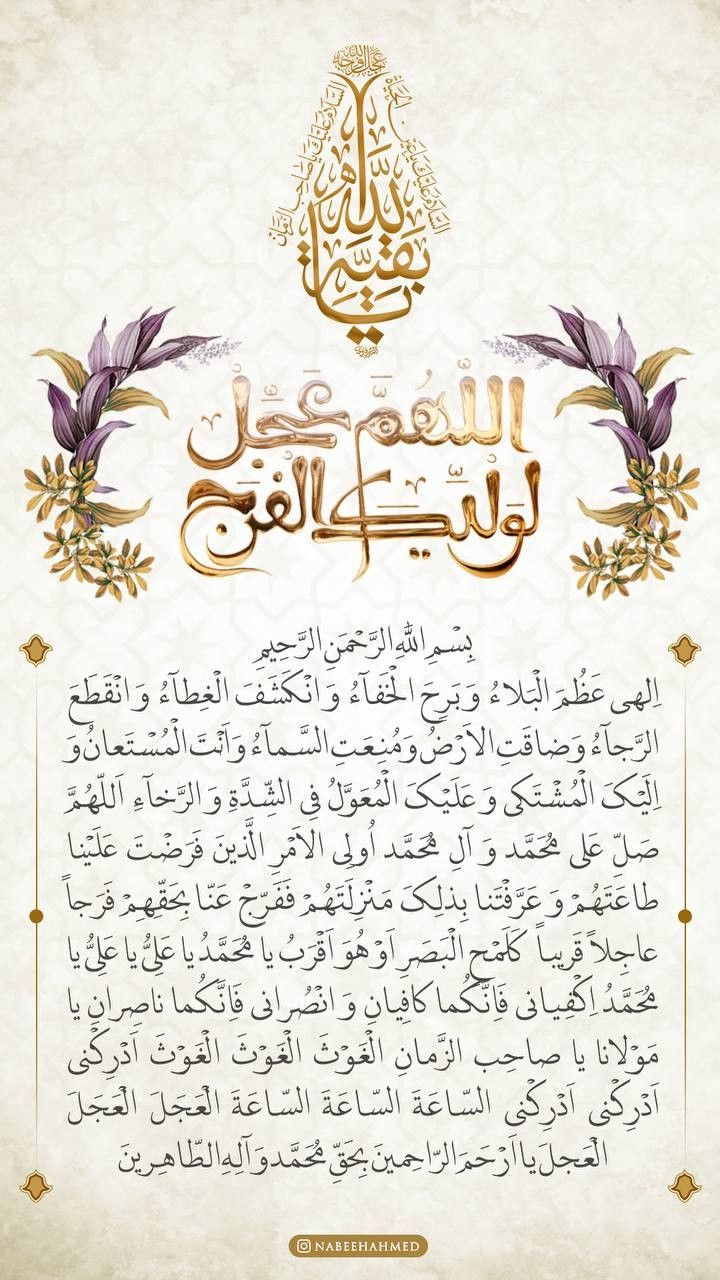 عجل الله فرجه
السلام عليك يا عين الحياة
السلام عليك يا صاحب الزمان
يا بقية الله
اللهم عجل
لوليك الفرج
بِسْمِ اللهِ الرَّحْمَنِ الرَّحِيمِ
اِلهى عَظُمَ الْبَلاءُ وَ بَرِحَ الْخَفآءُ وَ انْكَشَفَ الْغِطآءُ وَ انْقَطَعَ
الرَّجآءُ وَ ضاقَتِ الاَرْضُ وَ مُنِعَتِ السَّمآءُ وَ اَنْتَ الْمُسْتَعانُ وَ
اِلَيْکَ الْمُشْتَکى وَ عَلَيْکَ الْمُعَوَّلُ فِى الشِّدَّةِ وَ الرَّخآءِ اَللّهُمَّ
صَلِّ عَلى مُحَمَّد وَ آلِ مُحَمَّد اُولِى الاَمْرِ الَّذينَ فَرَضْتَ عَلَيْنا
طاعَتَهُمْ وَ عَرَّفْتَنا بِذلِکَ مَنْزِلَتَهُمْ فَفَرِّجْ عَنّا بِحَقِّهِمْ فَرَجاً
عاجِلاً قَريباً کَلَمْحِ الْبَصَرِ اَوْ هُوَ اَقْرَبُ يا مُحَمَّدُ يا عَلِىُّ يا عَلِىُّ يا
مُحَمَّدُ اِکْفِيانى فَاِنَّکُما کافِيانِ وَ انْصُرانى فَاِنَّکُما ناصِرانِ يا
مَوْلانا يا صاحِبَ الزَّمانِ الْغَوْثَ الْغَوْثَ الْغَوْثَ اَدْرِکْنى
اَدْرِکْنى اَدْرِکْنى السّاعَةَ السّاعَةَ السّاعَةَ الْعَجَلَ الْعَجَلَ
الْعَجَلَ يا اَرْحَمَ الرّاحِمينَ بِحَقِّ مُحَمَّد وَ آلِهِ الطّاهِرينَ
NABEEHAHMED